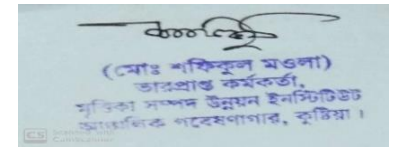 (মোঃ শফিকুল মওলা)
ভারপ্রাপ্ত কর্মকর্তা,
মৃত্তিকা সম্পদ উন্নয়ন ইনস্টিটিউট
আঞ্চলিক গবেষণাগার, কুষ্টিয়া।
CS